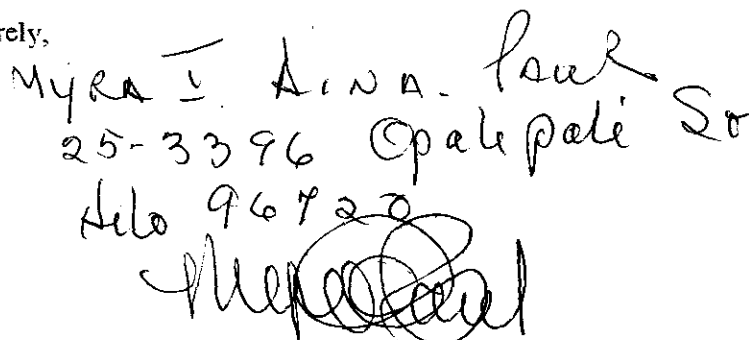 rely,
MYRA I. AINA. Paul
25-3396 Opalipali
Hilo 96720